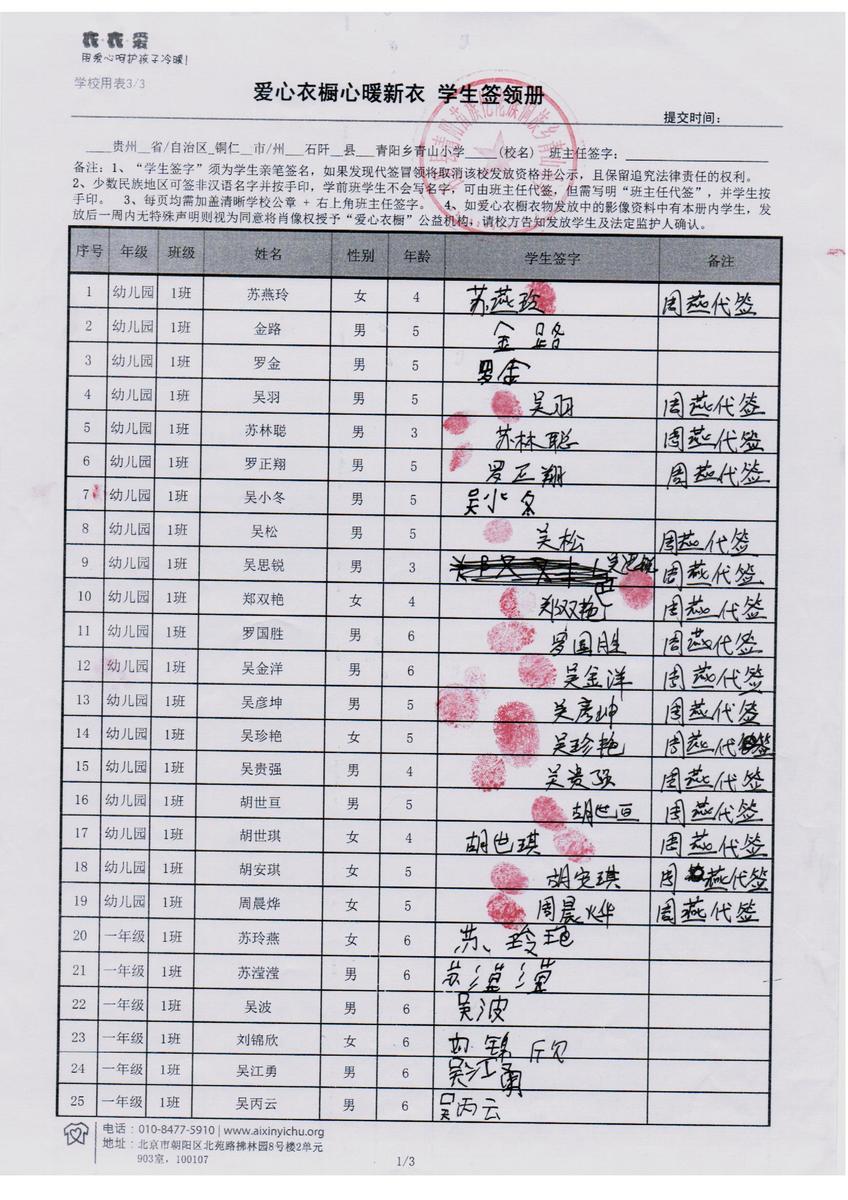 衣·衣·爱
用爱心呵护孩子冷暖!
学校用表3/3
爱心衣橱心暖新衣 学生签领册
提交时间:
贵州 省/自治区 铜仁 市/州 石阡 县 青阳乡青山小学 (校名) 班主任签字:
备注: 1、“学生签字”须为学生亲笔签名,如果发现代签冒领将取消该校发放资格并公示,且保留追究法律责任的权利。
2、少数民族地区可签非汉语名字并按手印,学前班学生不会写名字,可由班主任代签,但需写明“班主任代签”,并学生按
手印。 3、每页均需加盖清晰学校公章 + 右上角班主任签字。 4、如爱心衣橱衣物发放中的影像资料中有本册内学生,发
放后一周内无特殊声明则视为同意将肖像权授予“爱心衣橱”公益机构,请校方告知发放学生及法定监护人确认。
序号 年级 班级 姓名 性别 年龄 学生签字 备注
1 幼儿园 1班 苏燕玲 女 4 苏燕玲 周燕代签
2 幼儿园 1班 金路 男 5 金路
3 幼儿园 1班 罗金 男 5 罗金
4 幼儿园 1班 吴羽 男 5 吴羽 周燕代签
5 幼儿园 1班 苏林聪 男 3 苏林聪 周燕代签
6 幼儿园 1班 罗正翔 男 5 罗正翔 周燕代签
7 幼儿园 1班 吴小冬 男 5 吴小冬
8 幼儿园 1班 吴松 男 5 吴松 周燕代签
9 幼儿园 1班 吴思锐 男 3 吴思锐 周燕代签
10 幼儿园 1班 郑双艳 女 4 郑双艳 周燕代签
11 幼儿园 1班 罗国胜 男 6 罗国胜 周燕代签
12 幼儿园 1班 吴金洋 男 6 吴金洋 周燕代签
13 幼儿园 1班 吴彦坤 男 5 吴彦坤 周燕代签
14 幼儿园 1班 吴珍艳 女 5 吴珍艳 周燕代签
15 幼儿园 1班 吴贵强 男 4 吴贵强 周燕代签
16 幼儿园 1班 胡世亘 男 5 胡世亘 周燕代签
17 幼儿园 1班 胡世琪 女 4 胡世琪 周燕代签
18 幼儿园 1班 胡安琪 女 5 胡安琪 周燕代签
19 幼儿园 1班 周晨烨 女 5 周晨烨 周燕代签
20 一年级 1班 苏玲燕 女 6 苏、玲艳
21 一年级 1班 苏滢滢 男 6 苏
22 一年级 1班 吴波 男 6 吴波
23 一年级 1班 刘锦欣 女 6 锦 欣
24 一年级 1班 吴江勇 男 6 吴江勇
25 一年级 1班 吴丙云 男 6 吴丙云
电话:010-8477-5910 | www.aixinyichu.org
地址:北京市朝阳区北苑路拂林园8号楼2单元
903室,100107
1/3